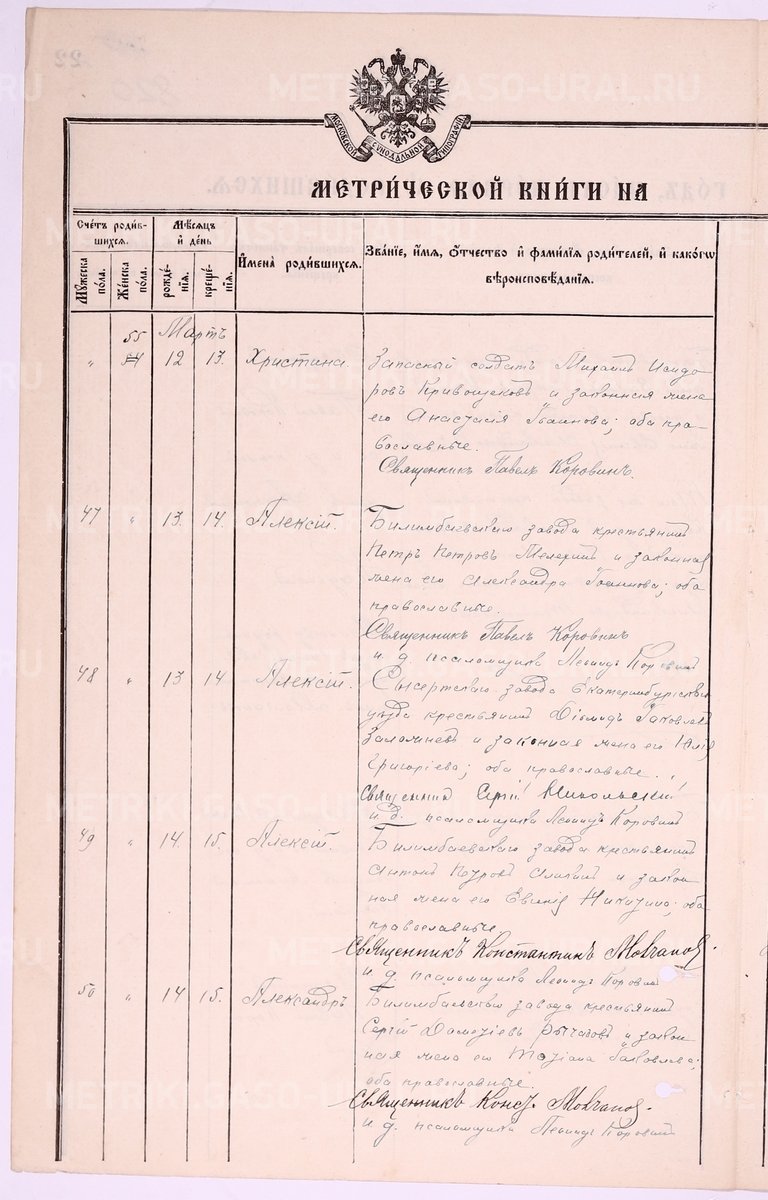 METRIKI.GASO-URAL.RU
МОСКОВСКОЙ СѴНОДАЛЬНОЙ ТИПОГРАФІИ
МЕТРИ́ЧЕСКОЙ КНИ́ГИ НА
Сче́тъ роди́в-шихсѧ.
Мѣ́сѧцъ и҆ де́нь
И҆мена̀ роди́вшихсѧ.
Зва́нїе, и҆́мѧ, ѻ҆́тчество и҆ фами́лїѧ роди́телей, и҆ како́гѡ вѣроисповѣ́данїѧ.
Мꙋ́жеска по́ла.
Же́нска по́ла.
рожде́нїѧ.
креще́нїѧ.
55 Мартъ
„ 54 12 13. Христина. Запасный солдатъ Михаилъ Исидо-
ровъ Кривощековъ и законная жена
его Анастасія Іоаннова; оба пра-
вославные.
Священникъ Павелъ Коровинъ.
47 „ 13. 14. Алексій. Билимбаевскаго завода крестьянинъ
Петръ Петровъ Мелехинъ и законная
жена его Александра Іоаннова; оба
православные.
Священникъ Павелъ Коровинъ
и. д. псаломщика Леонидъ Коровинъ
48 „ 13 14. Алексій. Сысертскаго завода Екатеринбургскаго
уѣзда крестьянинъ Діомидъ Іаковлевъ
и законная жена его Юлія
Григоріева; оба православные.
Священникъ Сергій Никольскій
и. д. псаломщика Леонидъ Коровинъ
49 „ 14. 15. Алексій. Билимбаевскаго завода крестьянинъ
Антонъ Петровъ и закон-
ная жена его Евгенія Никитина; оба
православные
Священникъ Константинъ Молчановъ.
и д. псаломщика Леонидъ Коровинъ
50 „ 14 15. Александръ Билимбаевскаго завода крестьянинъ
Сергій Дометіевъ и закон-
ная жена его Татіана Іаковлева;
оба православные.
Священникъ Конст. Молчановъ.
и. д. псаломщика Леонидъ Коровинъ